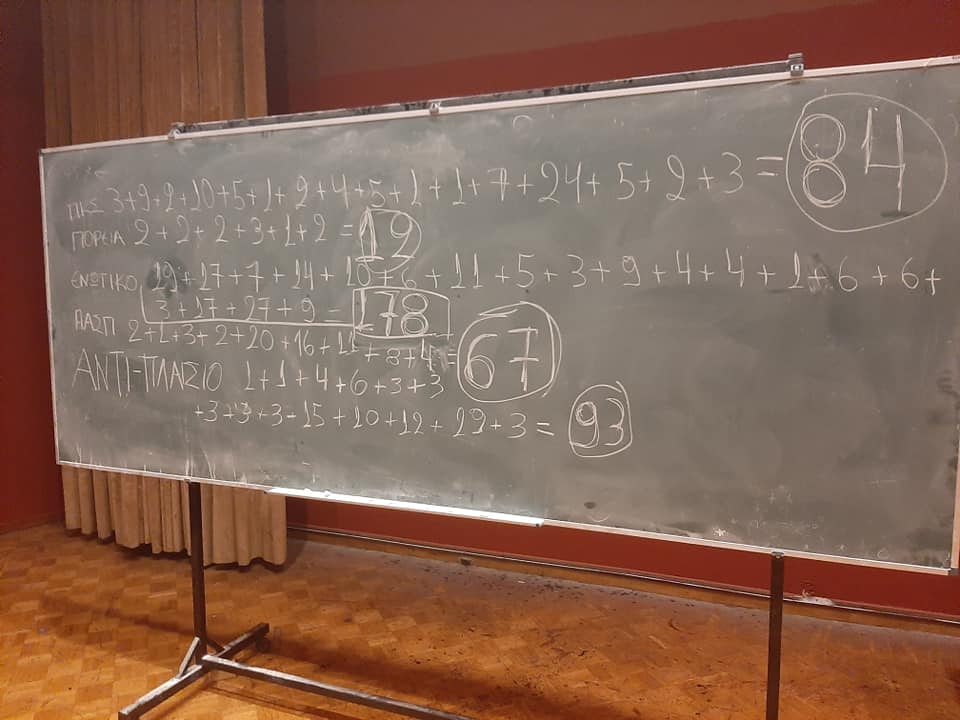 ΠΚΣ 3+9+2+10+5+1+2+4+5+1+1+7+24+5+2+3 = 84
ΠΟΡΕΙΑ 2+2+2+3+1+2 = 12
ΕΝΩΤΙΚΟ 19+17+7+14+10+6+11+5+3+9+4+4+1+6+6+
3+17+27+9 = 178
ΑΑΣΠ 2+1+3+2+20+16+11+8+4 = 67
ΑΝΤΙ-ΠΛΑΣΙΟ 1+1+4+6+3+3
+3+3+3+15+10+12+29+3 = 93